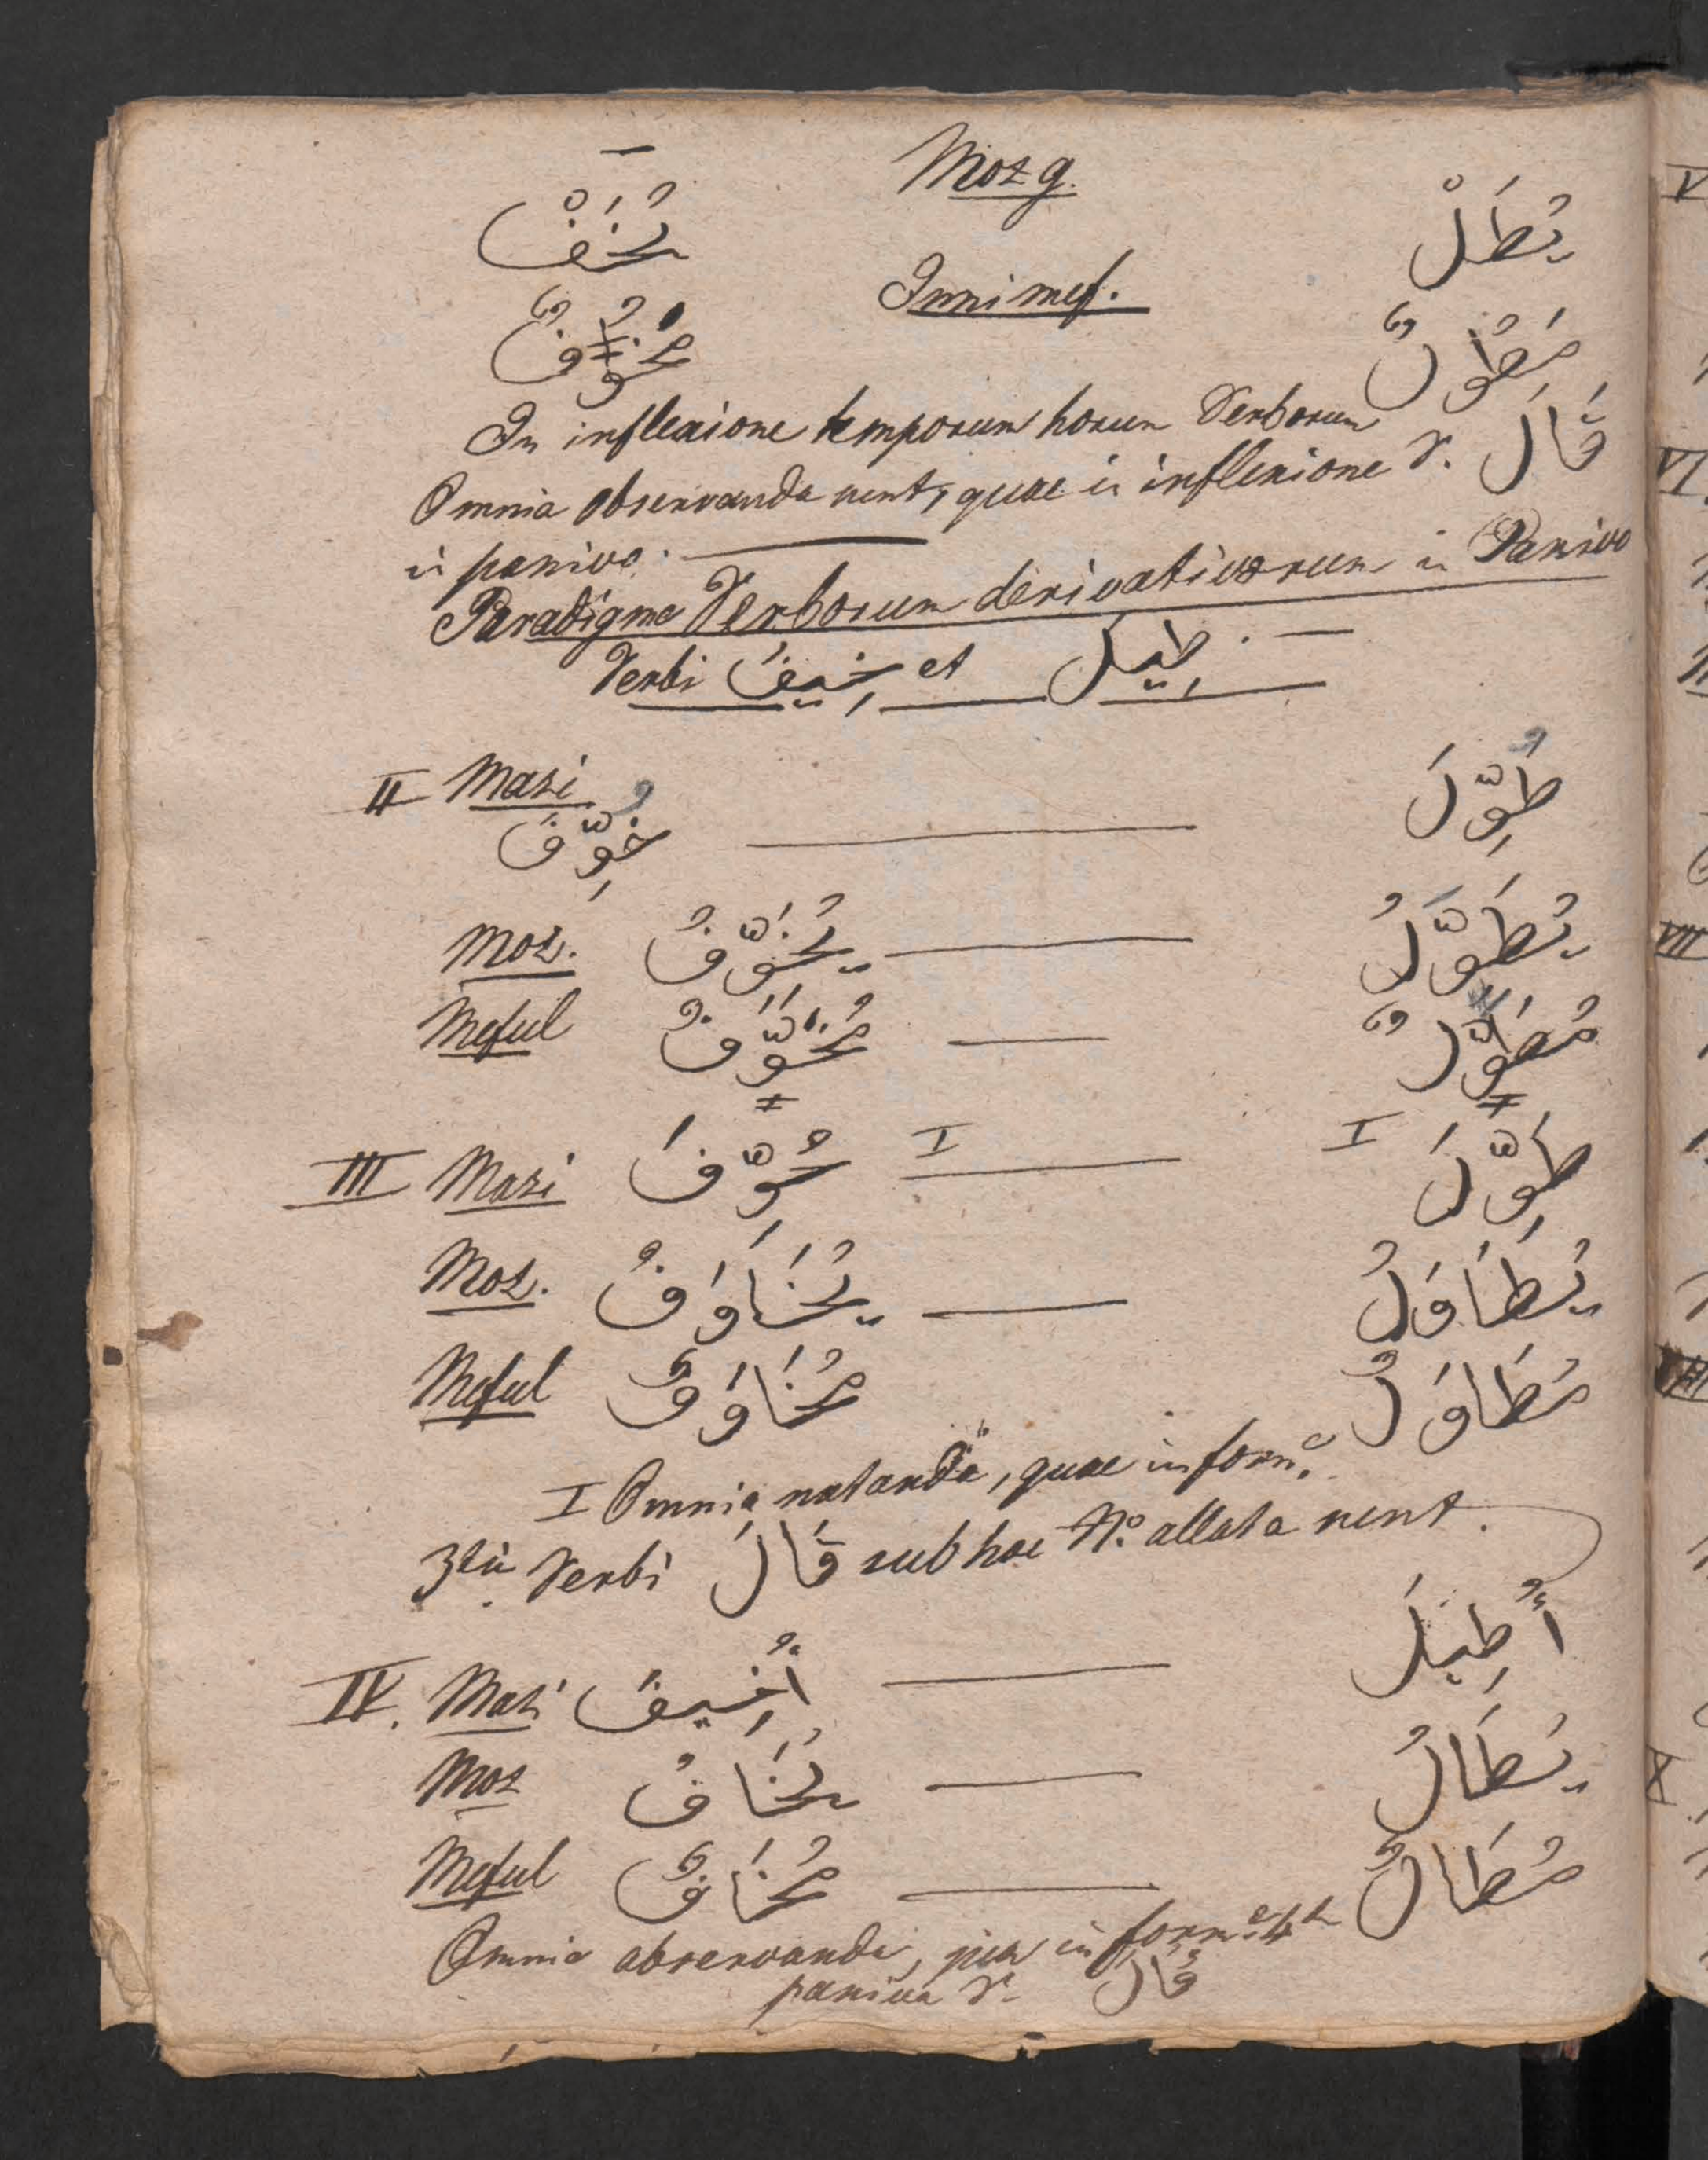 Moz g.
يُخَفْ يُطَلْ
Ismi mef.
مَخُوفٌ مَطُولٌ
In inflexione temporum horum Verborum
Omnia observanda sunt, quae in inflexione V. قَالَ
in passivo.
Paradigma Verborum derivativorum in Passivo
Verbi خِيفَ et طِيلَ
II Mazi
خُوِّفَ طُوِّلَ
Moz. يُخَوَّفُ يُطَوَّلُ
Meful مُخَوَّفٌ مُطَوَّلٌ
III Mazi خُوِّفَ I I طُوِّلَ
Moz. يُخَاوَفُ يُطَاوَلُ
Meful مُخَاوَفٌ مُطَاوَلٌ
I Omnia notanda, quae in form.
3tia Verbi قَالَ sub hoc No. allata sunt.
IV. Mazi أُخِيفَ أُطِيلَ
Moz يُخَافُ يُطَالُ
Meful مُخَافٌ مُطَالٌ
Omnia observanda, quae in form. 4ta
passiva V. قَالَ